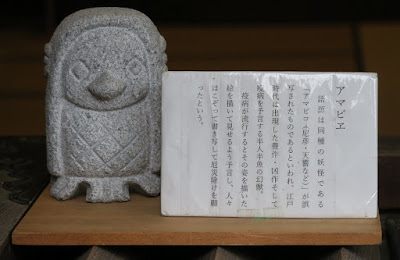 アマビヱ
諸説は同種の妖怪である
「アマビコ(尼彦・天響など)が誤
写されたものであるといわれ、江戸
時代に出現した豊作・凶作そして
疫病を予言する半人半魚の幻獣。
疫病が流行するとその姿を描いた
絵を描いて見せるよう予言し、人々
はこぞって書き写して厄災除けを願
ったという。